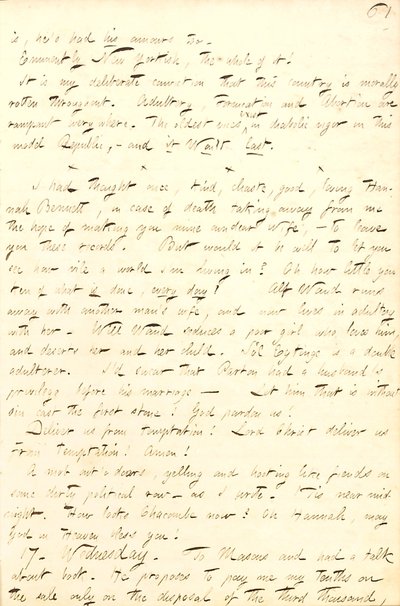 61
is, he'd had his amours too.
Comment by New Yorkish, the whole of it!
It is my deliberate conviction that this country is morally
rotten throughout. Adultery, Fornication and Abortion are
rampant everywhere. The oldest vices exist in diabolic vigor in this
model Republic, – and it Won't last.
I had thought once, kind, chaste, good, loving Han-
nah Bennett, in case of death taking away from me
the hope of making you mine own dear wife, – to leave
you these records. But would it be well to let you
see how vile a world I'm living in? Oh how little you
ken of what is done, every day! Alf Waud runs
away with another man's wife, and now lives in adultery
with her – Will Waud seduces a poor girl who loves him,
and deserts her and her child. Sol Eytinge is a double
adulterer. I'd swear that Parton had a husband's
privilege before his marriage – Let him that is without
sin cast the first stone! God pardon us!
Deliver us from temptation! Lord Christ deliver us
from Temptation! Amen!
A riot out o' doors, yelling and hooting like fiends on
some dirty political row – as I write. 'Tis near mid-
night. How looks Chacombe now? Oh Hannah, may
God in Heaven bless you!
17. Wednesday. To Masons and had a talk
about book. He proposes to pay me my tenths on
the sale only on the disposal of the third thousand,